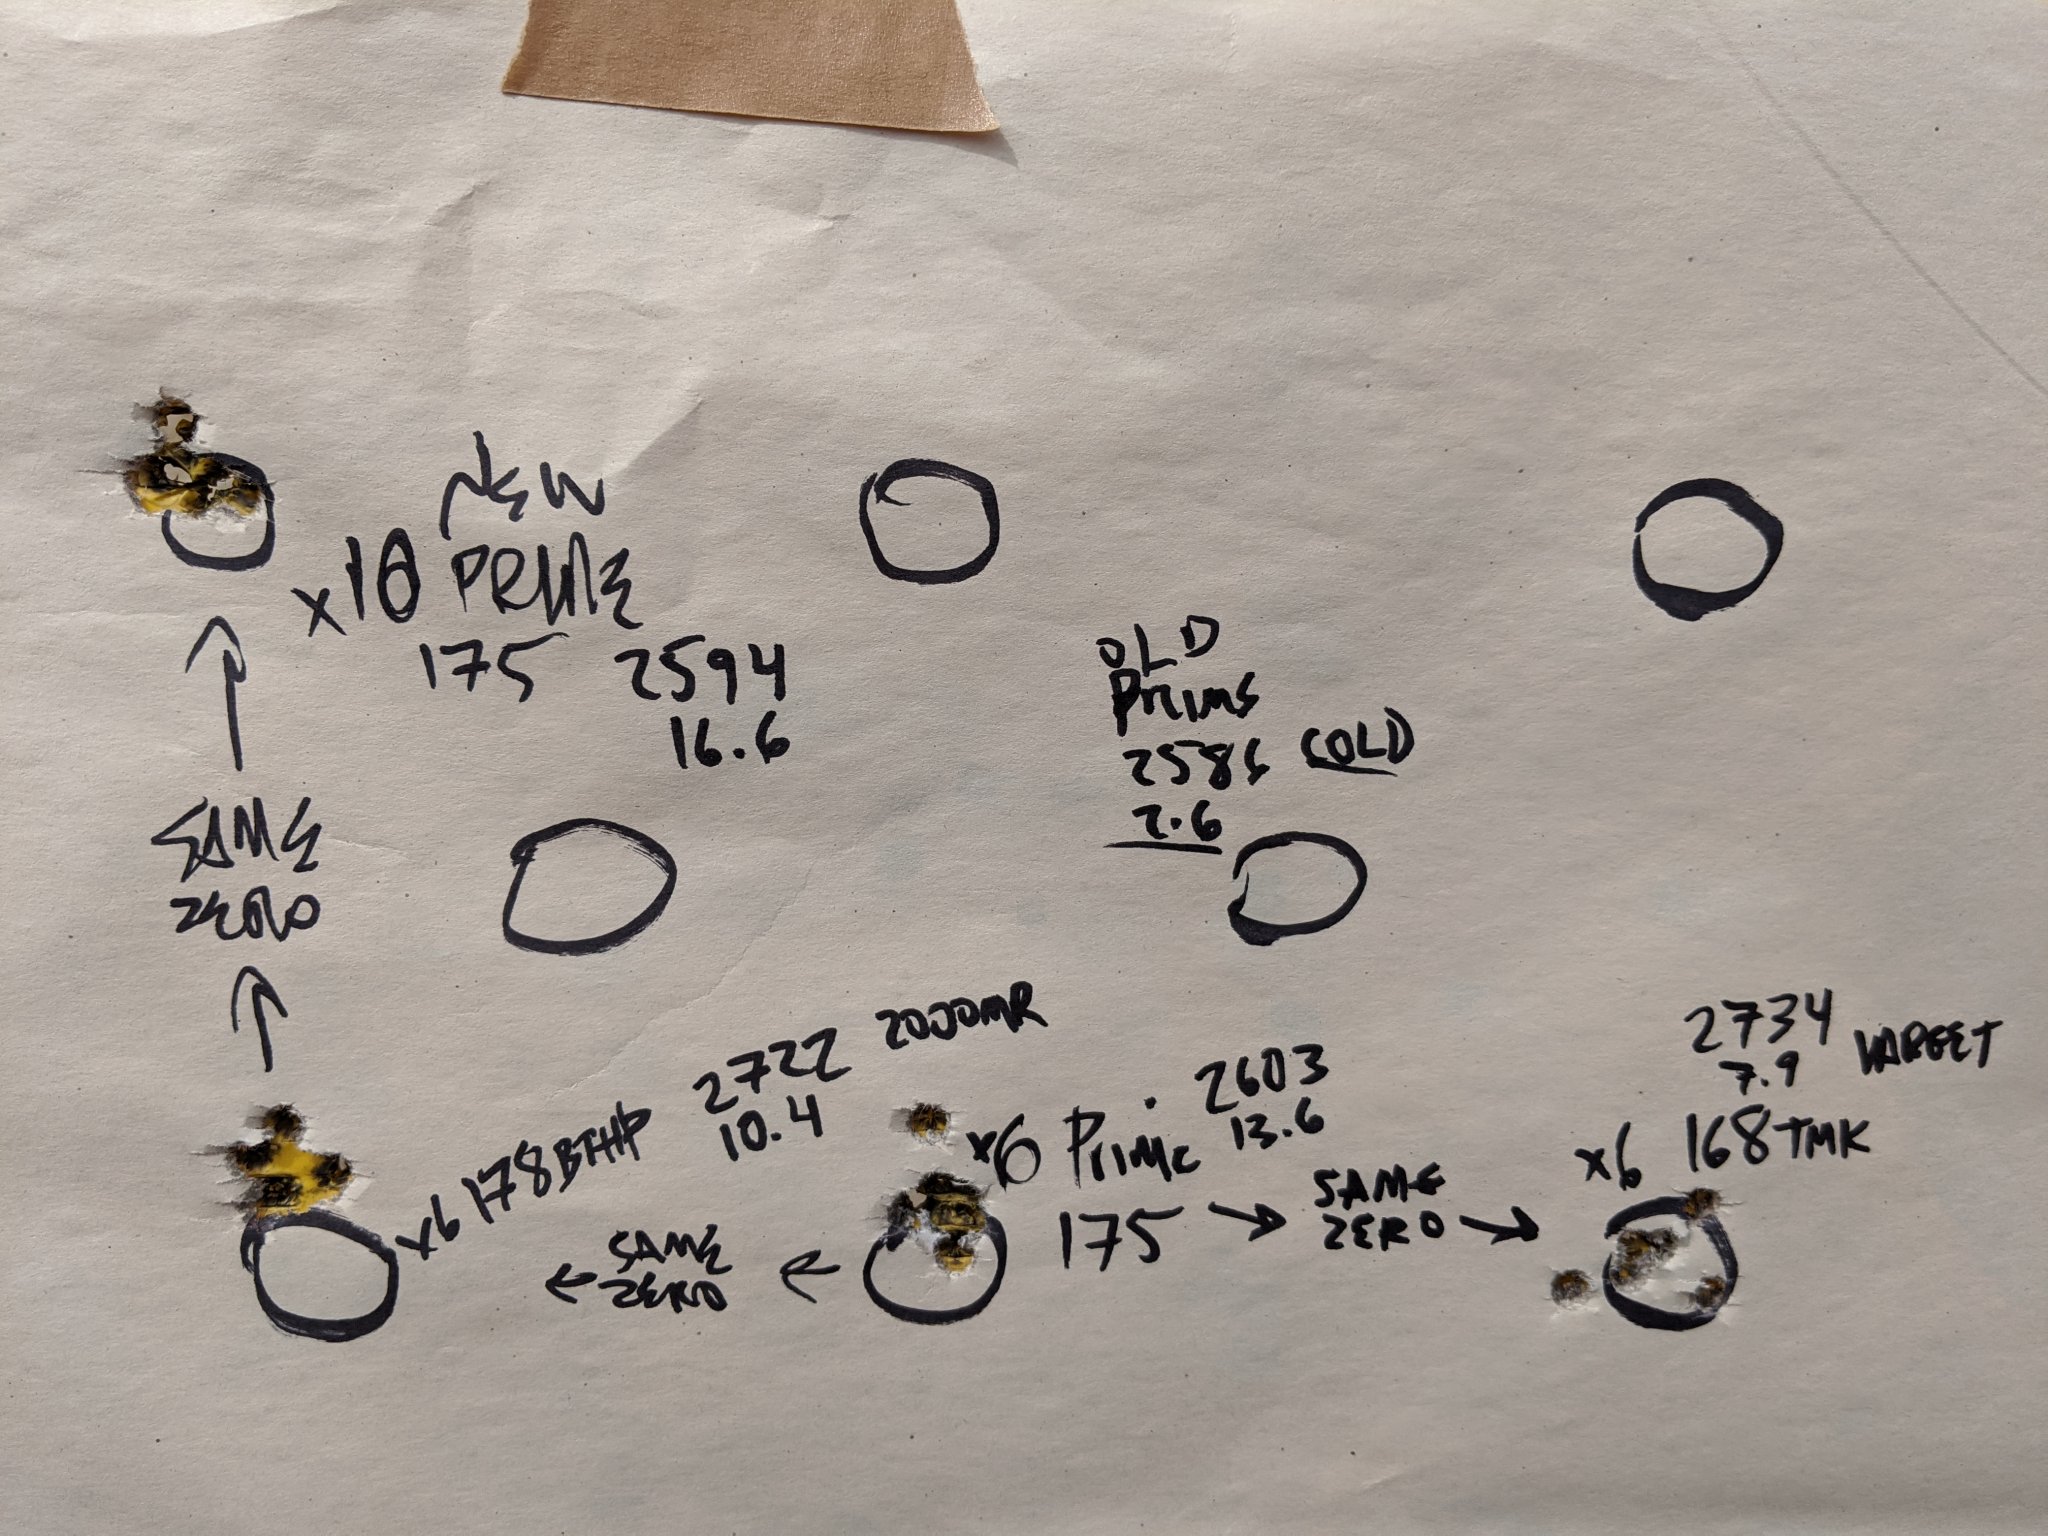 NEW
x10 PRIME
175 2594
16.6
OLD
PRIME
2586 COLD
2.6
SAME
ZERO
2722 2000MR
10.4
x6 178BTHP
2603
13.6
x6 Prime
175
SAME
ZERO
SAME
ZERO
2734
7.9 VARGET
x6 168 TMK